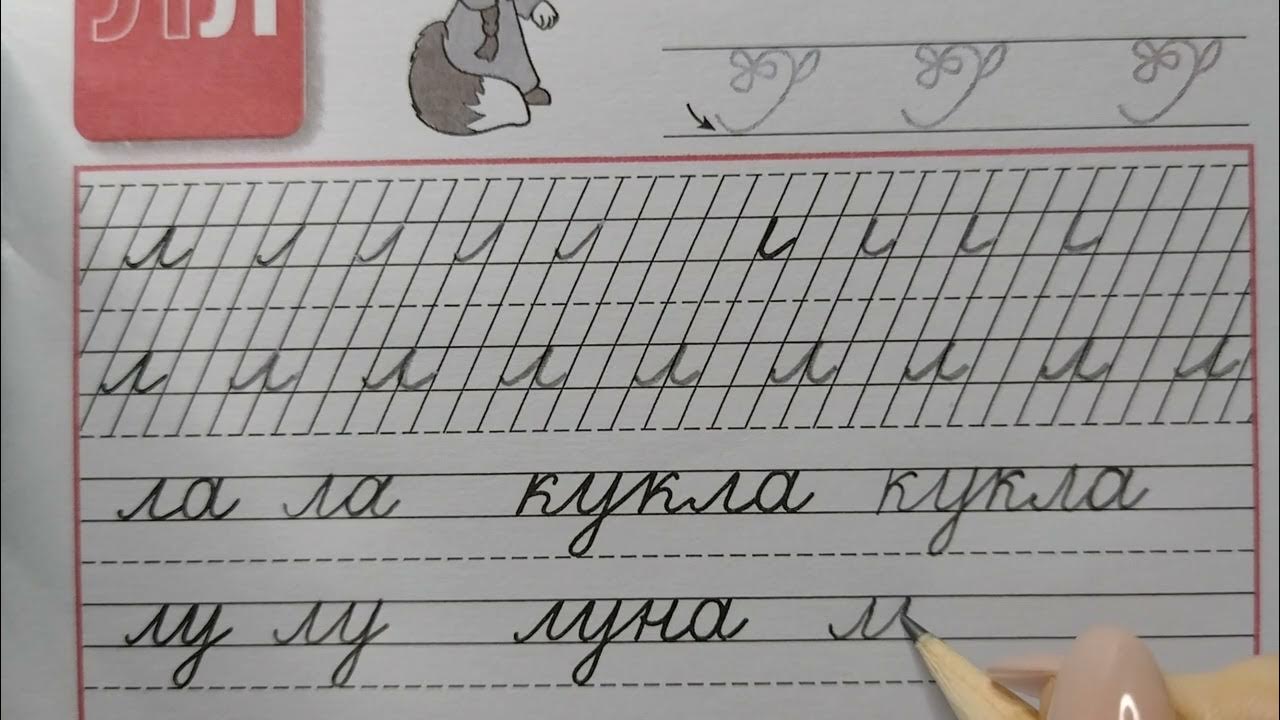 Лл
л
л л л л л л л л л
ла ла кукла кукла
лу лу луна л